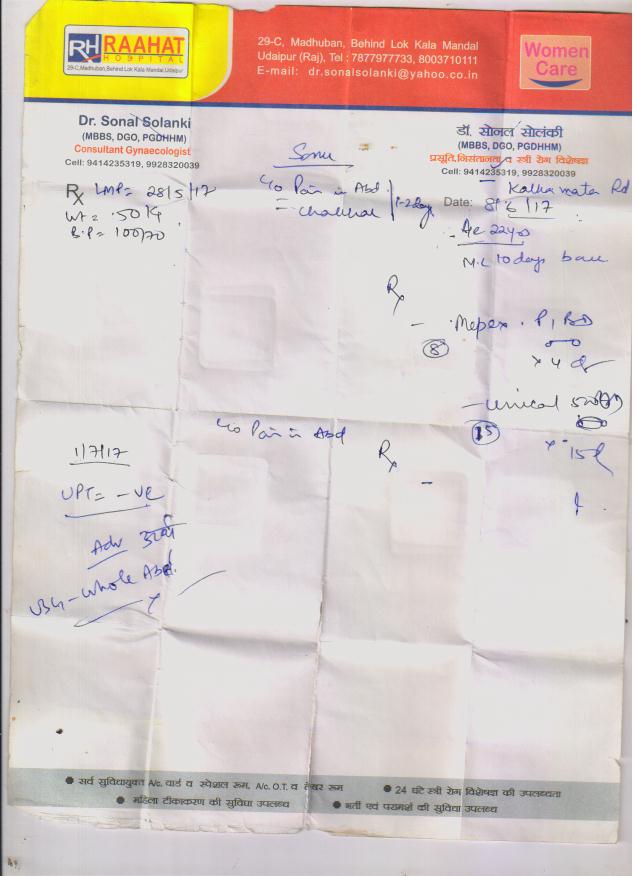 RH RAAHAT
HOSPITAL
29-C, Madhuban, Behind Lok Kala Mandal, Udaipur
29-C, Madhuban, Behind Lok Kala Mandal
Udaipur (Raj), Tel : 7877977733, 8003710111
E-mail: dr.sonalsolanki@yahoo.co.in
Women
Care
Dr. Sonal Solanki
(MBBS, DGO, PGDHHM)
Consultant Gynaecologist
Cell: 9414235319, 9928320039
डॉ. सोनल सोलंकी
(MBBS, DGO, PGDHHM)
प्रसूति, निसंतानता व स्त्री रोग विशेषज्ञ
Cell: 9414235319, 9928320039
Sonu
Kalka mata Rd
Date: 8/6/17
Rx LMP= 28/5/17
Wt = 50 kg
B.P = 100/70
c/o Pain in Abd
1-2 days
Age 22 yrs
M.C 10 days back
Rx
- Mepex. P, BD
8
x 4 d
- Unical 500
15
x 15 d
1/7/17
c/o Pain in Abd
Rx
UPT = -ve
Adv
USG - whole Abd.
● सर्व सुविधायुक्त A/c. वार्ड व स्पेशल रूम, A/c. O.T. व लेबर रूम ● 24 घंटे स्त्री रोग विशेषज्ञ की उपलब्धता
● महिला टीकाकरण की सुविधा उपलब्ध ● भर्ती एवं परामर्श की सुविधा उपलब्ध